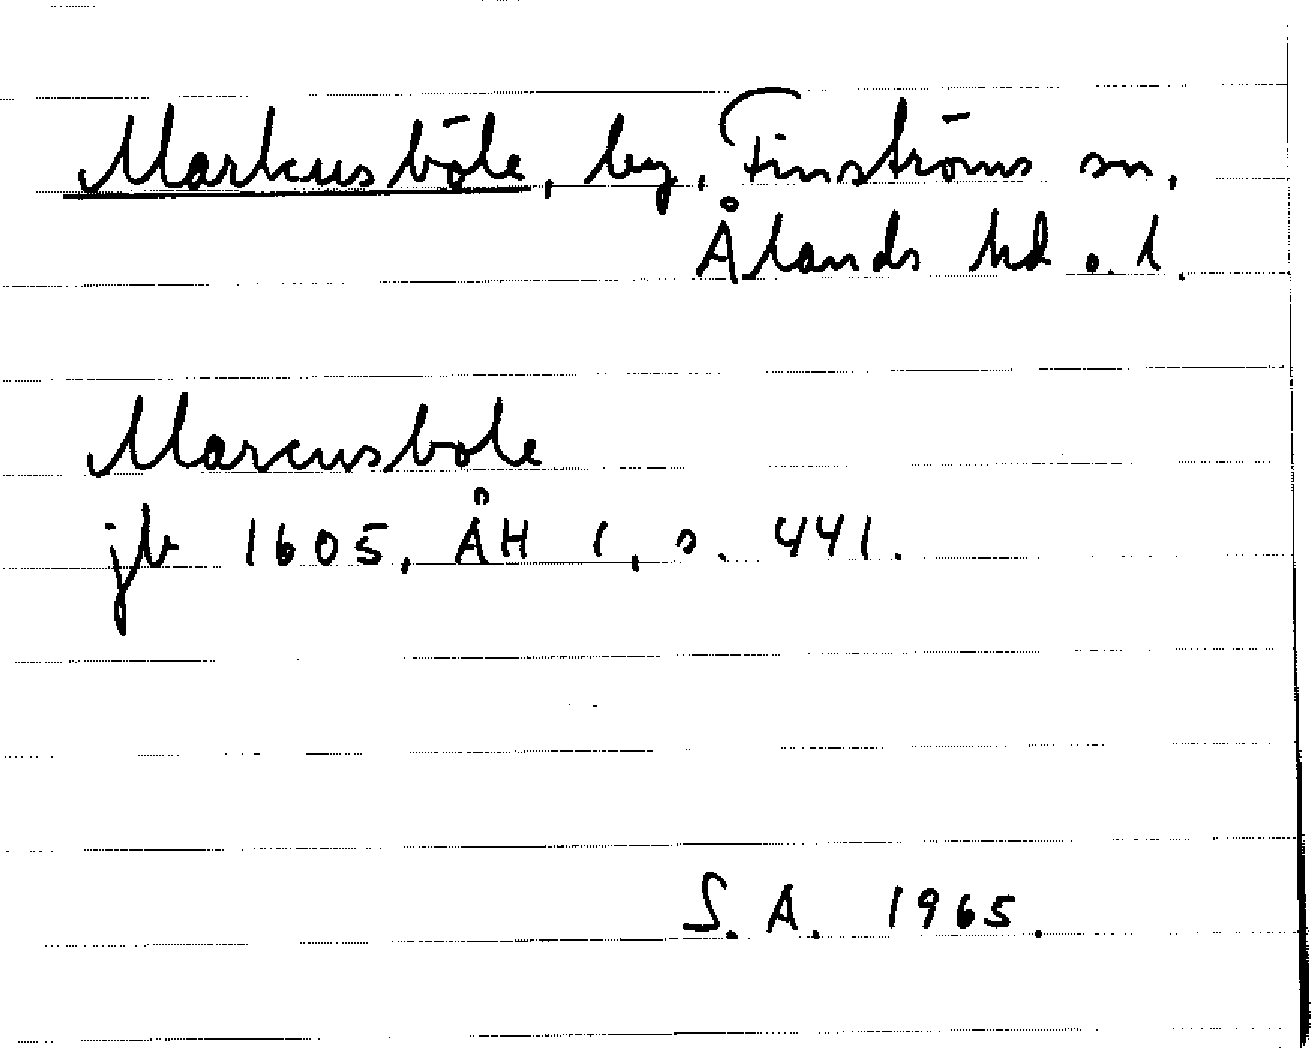 Markusböle, by, Finströms sn,
Ålands hd o. l.
Marcusbole
jb 1605, ÅH 1, s. 441.
S. A. 1965.